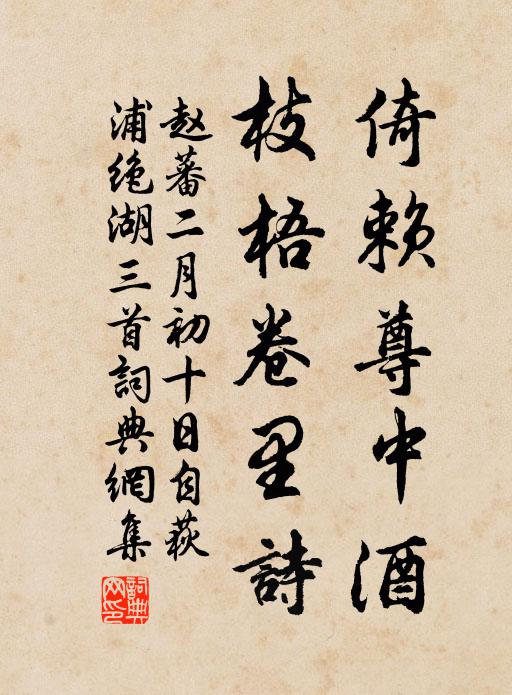 倚赖尊中酒
枝梧卷里詩
赵蕃二月初十日自荻
浦绝湖三首詞典網集
詞典
网印